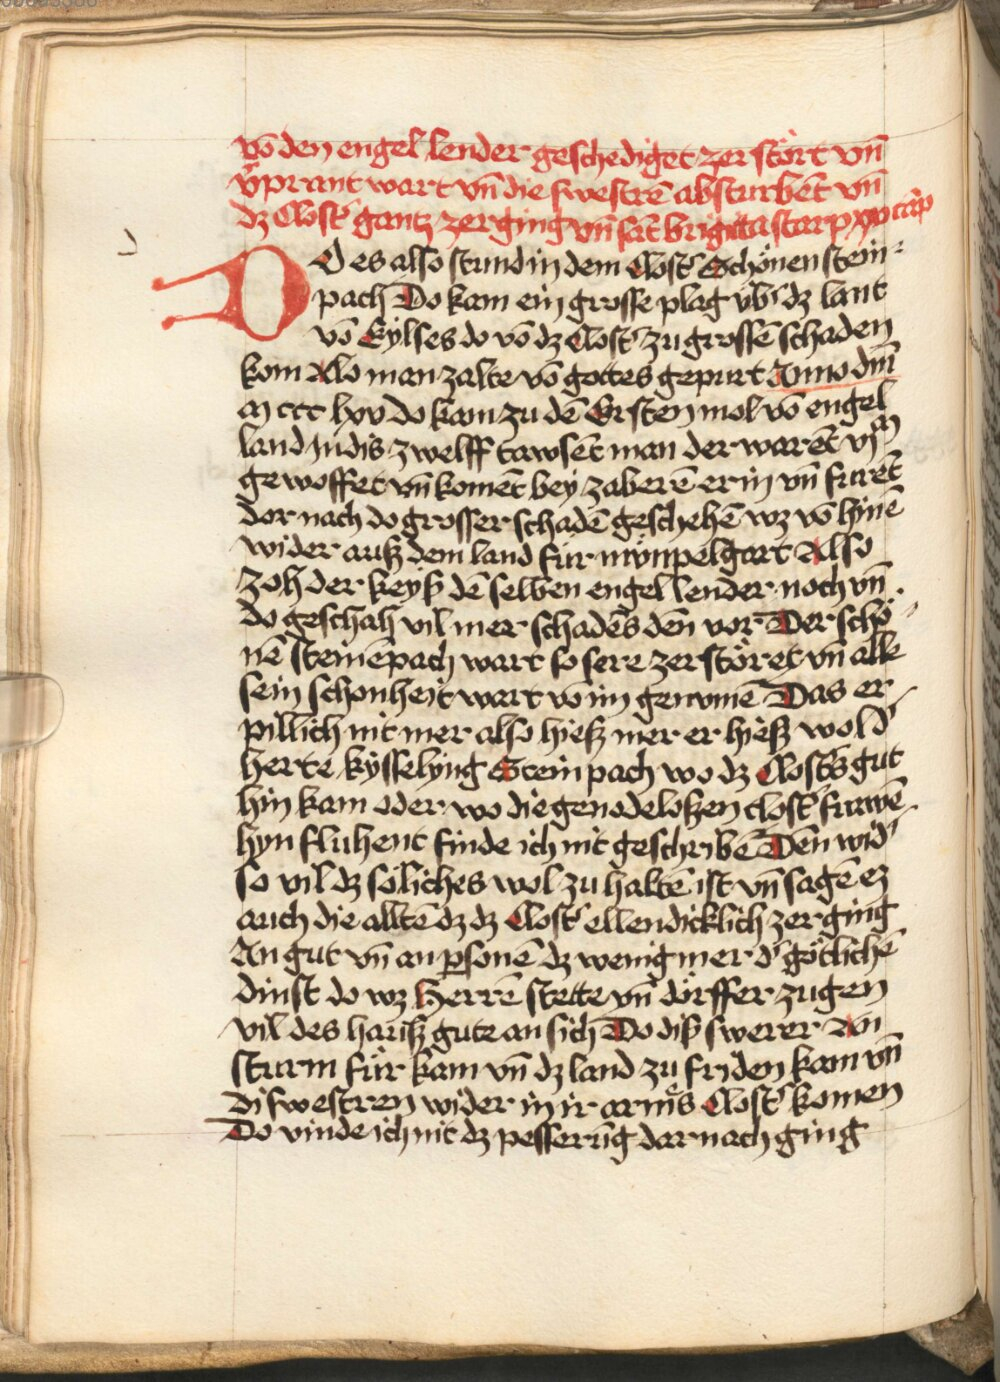 vō den engel lender geschediget zer stört vn̄
v̄prant wart vn̄ die swestrē absturbēt vn̄
dz Clost' gantz zerging vn̄ sāt brigitta starp xxv cap
DO es also stund in dem Clost' Schönen stein
pach Do kam ein grosse plag vb' dz lant
vō Eylses do vō dz Clost' zu grossē schaden
kom Alo man zalte vō gottes gepurt Anno dm̄
m ccc lxv do kam zu dē Ersten mol vō engel
land in dis zwelff tawsēt man der warēt vjm
gewoffet vn̄ komēt bey zaberē erin vn̄ furēt
dor nach do grosser schadē geschehē wz vō hinē
wider auß dem land für münpelgart Also
zoh der keyß dē selben engel lender noch vn̄
do geschah vil mer schadēs den vor Der schö
nē steinēpach wart so sere zerstöret vn̄ alle
sein schonheit wart vō im genomē Das er
pillich nit mer also hieß mer er hieß wol d'
herte kysselyng Steinpach wo dz Closts gut
hin kam oder wo die genodeloßen clost' frawē
hyn fluhent finde ich nit geschribē Den wid'
so vil dz söliches wol zu haltē ist vn̄ sagē ez
auch die altē dz dz Clost' ellendicklich zerging
An gut vn̄ an psonē dz wenig mer d' götlichē
dinst do wz Herrē stette vn̄ dörffer zugen
vil des hauß gutz an sich Do diß swerer An
sturm für kam vn̄ dz land zu friden kam vn̄
di swestren wider in ir arm̄s Clost' komen
Do vinde ich nit dz pesserūg dar nach ging